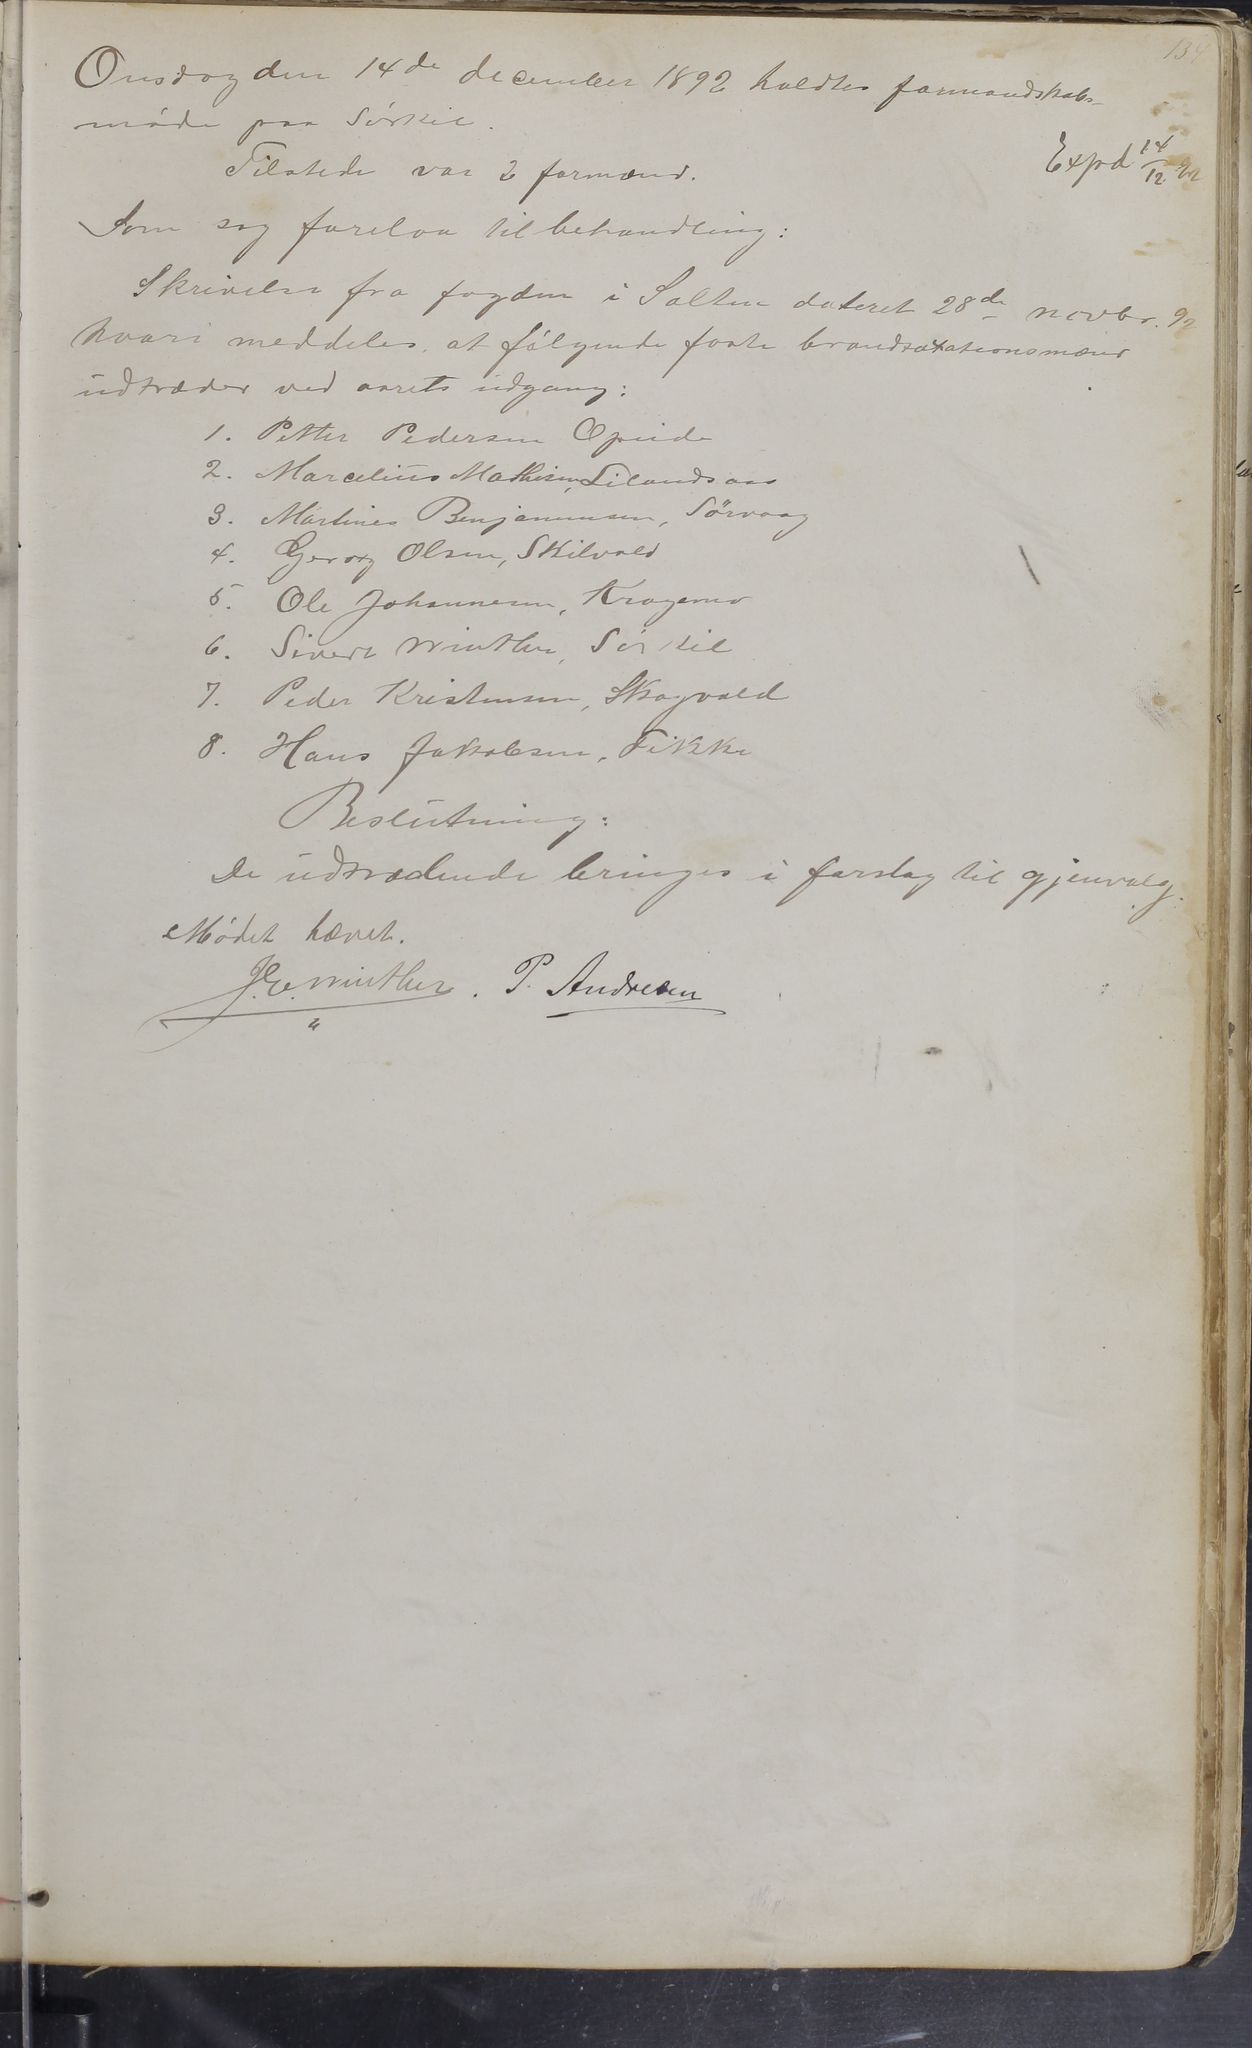 134
Onsdag den 14de december 1892 holdtes formandskabs-
møde paa Sørkil.
Tilstede var 2 formænd.
Expd 14/12 92
Som sag forelaa til behandling:
Skrivelse fra fogden i Salten dateret 28de novbr. 92
hvori meddeles, at følgende faste brandtaxationsmænd
udtræder ved aarets udgang:
1. Petter Pedersen Opeide
2. Marcelius Mathisen, Lilandsaas
3. Martines Benjaminsen, Sørvaag
4. Georg Olsen, Skilvold
5. Ole Johannesen, Kragemo
6. Sivert Winther, Sørkil
7. Peder Kristensen, Skogvold
8. Hans Jakobsen, Fikke
Beslutning:
De udtrædende bringes i forslag til gjenvalg.
Mødet hævet.
J. E. Winther. P. Andresen